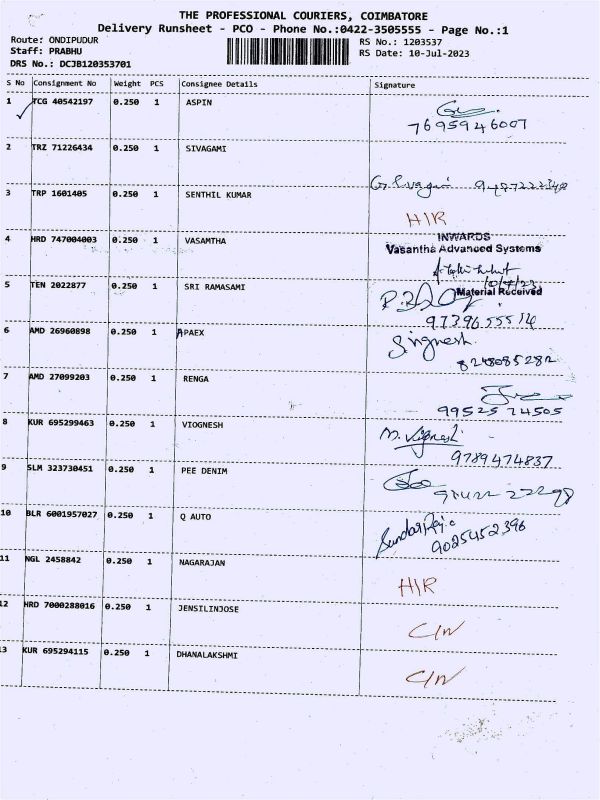 THE PROFESSIONAL COURIERS, COIMBATORE
Delivery Runsheet - PCO - Phone No.:0422-3505555 - Page No.:1
Route: ONDIPUDUR RS No.: 1203537
Staff: PRABHU RS Date: 10-Jul-2023
DRS No.: DCJB120353701
S No Consignment No Weight PCS Consignee Details Signature
1 TCG 40542197 0.250 1 ASPIN
7695946007
2 TRZ 71226434 0.250 1 SIVAGAMI
3 TRP 1601405 0.250 1 SENTHIL KUMAR
H/R
4 HRD 747004003 0.250 1 VASAMTHA INWARDS
Vasantha Advanced Systems
5 TEN 2022877 0.250 1 SRI RAMASAMI Material Received
9739655514
6 AMD 26960898 0.250 1 APAEX
8248085282
7 AMD 27099203 0.250 1 RENGA
9952574505
8 KUR 695299463 0.250 1 VIOGNESH M. Vignesh
9789474837
9 SLM 323730451 0.250 1 PEE DENIM
10 BLR 6001957027 0.250 1 Q AUTO
9025452396
11 NGL 2458842 0.250 1 NAGARAJAN
H/R
12 HRD 7000288016 0.250 1 JENSILINJOSE
C/N
13 KUR 695294115 0.250 1 DHANALAKSHMI
C/N